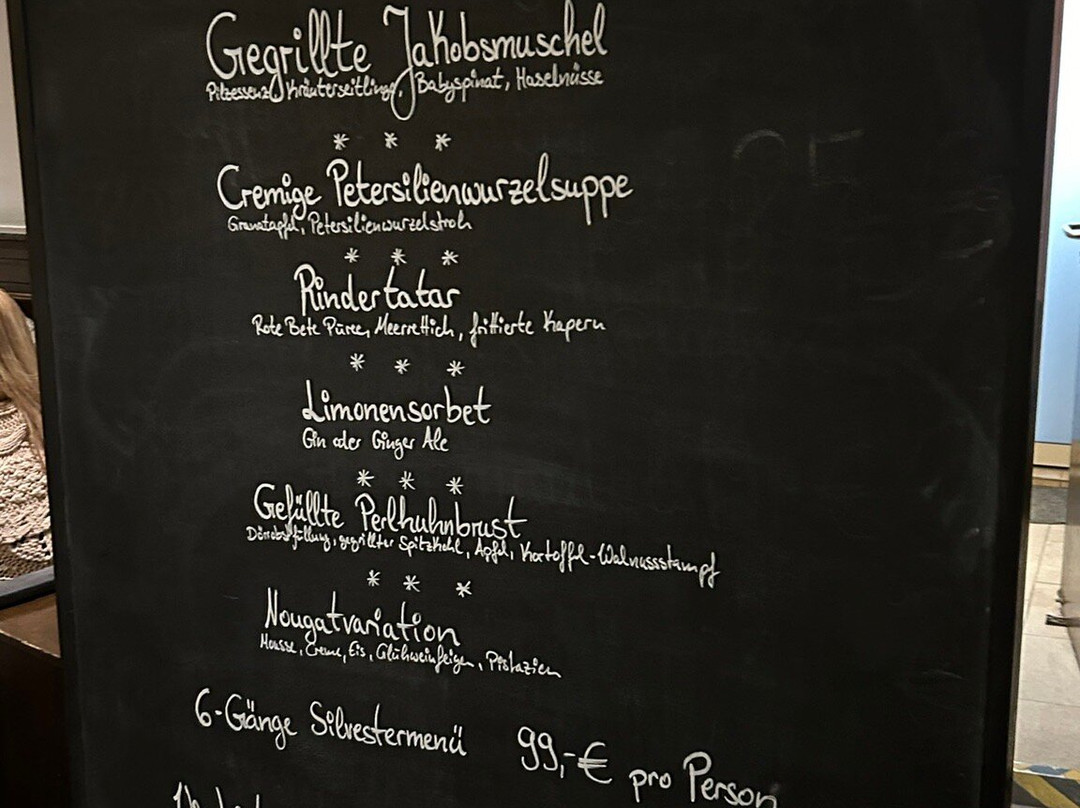 Gegrillte Jakobsmuschel
Pilzessenz, Kräuterseitlinge, Babyspinat, Haselnüsse
* * *
Cremige Petersilienwurzelsuppe
Granatapfel, Petersilienwurzelstroh
* * *
Rindertatar
Rote Bete Püree, Meerrettich, frittierte Kapern
* * *
Limonensorbet
Gin oder Ginger Ale
* * *
Gefüllte Perlhuhnbrust
Dörrobstfüllung, gegrillter Spitzkohl, Apfel, Kartoffel-Walnussstampf
* * *
Nougatvariation
Mousse, Creme, Eis, Glühweinfeigen, Pistazien
6-Gänge Silvestermenü 99,-€ pro Person